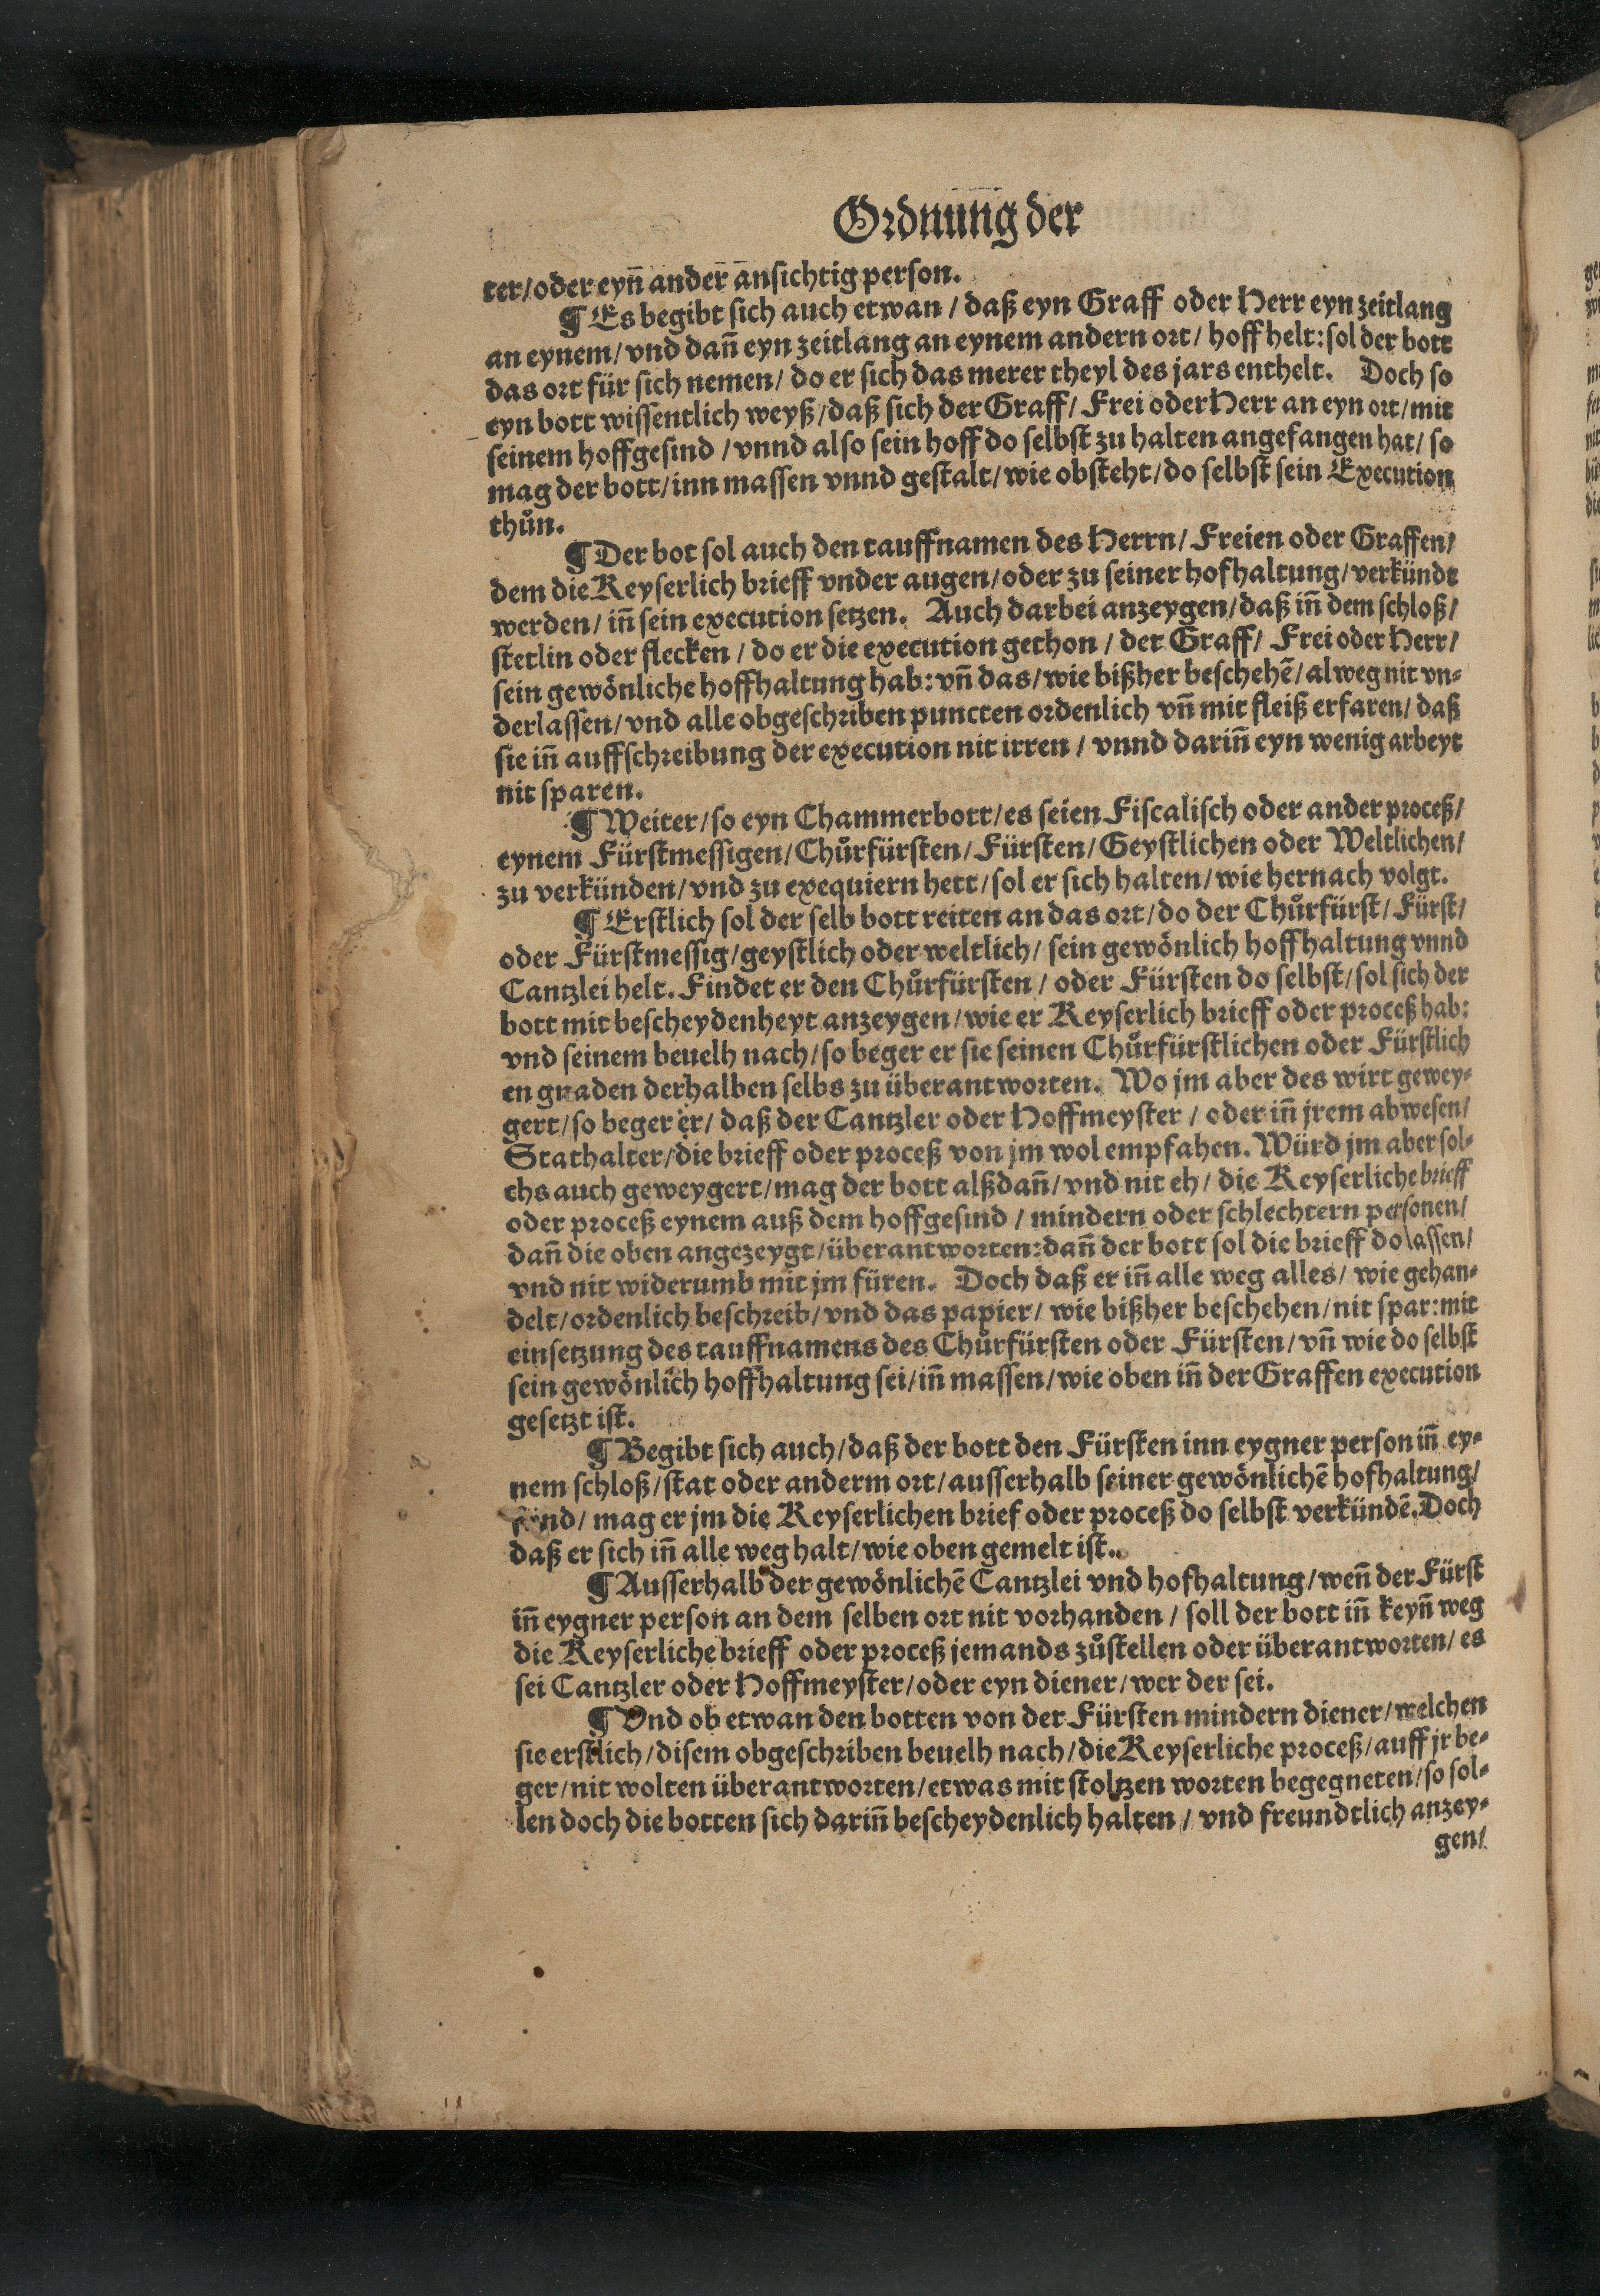 Ordnung der
ter/ oder eyñ ander ansichtig person.
¶ Es begibt sich auch etwan / daß eyn Graff oder Herr eyn zeitlang
an eynem/ vnd dañ eyn zeitlang an eynem andern ort/ hoff helt: sol der bott
das ort für sich nemen/ do er sich das merer theyl des jars enthelt. Doch so
eyn bott wissentlich weyß/ daß sich der Graff/ Frei oder Herr an eyn ort/ mit
seinem hoffgesind / vnnd also sein hoff do selbst zu halten angefangen hat/ so
mag der bott/ inn massen vnnd gestalt/ wie obsteht/ do selbst sein Execution
thůn.
¶ Der bot sol auch den tauffnamen des Herrn/ Freien oder Graffen/
dem die Keyserlich brieff vnder augen/ oder zu seiner hofhaltung/ verkündt
werden/ iñ sein execution setzen. Auch darbei anzeygen/ daß iñ dem schloß/
stetlin oder flecken / do er die execution gethon / der Graff/ Frei oder Herr/
sein gewönliche hoffhaltung hab: vñ das/ wie bißher beschehẽ/ alweg nit vn-
derlassen/ vnd alle obgeschriben puncten ordenlich vñ mit fleiß erfaren/ daß
sie iñ auffschreibung der execution nit irren / vnnd dariñ eyn wenig arbeyt
nit sparen.
¶ Weiter/ so eyn Chammerbott/ es seien Fiscalisch oder ander proceß/
eynem Fürstmessigen/ Chůrfürsten/ Fürsten/ Geystlichen oder Weltlichen/
zu verkünden/ vnd zu exequiern hett/ sol er sich halten/ wie hernach volgt.
¶ Erstlich sol der selb bott reiten an das ort/ do der Chůrfürst/ Fürst/
oder Fürstmessig/ geystlich oder weltlich/ sein gewönlich hoffhaltung vnnd
Cantzlei helt. Findet er den Chůrfürsten / oder Fürsten do selbst/ sol sich der
bott mit bescheydenheyt anzeygen/ wie er Keyserlich brieff oder proceß hab:
vnd seinem beuelh nach/ so beger er sie seinen Chůrfürstlichen oder Fürstlich
en gnaden derhalben selbs zu überantworten. Wo jm aber des wirt gewey-
gert/ so beger er/ daß der Cantzler oder Hoffmeyster / oder iñ jrem abwesen/
Stathalter/ die brieff oder proceß von jm wol empfahen. Würd jm aber sol-
chs auch geweygert/ mag der bott alßdañ/ vnd nit eh/ die Keyserliche brieff
oder proceß eynem auß dem hoffgesind / mindern oder schlechtern personen/
dañ die oben angezeygt/ überantworten: dañ der bott sol die brieff do lassen/
vnd nit widerumb mit jm füren. Doch daß er iñ alle weg alles/ wie gehan-
delt/ ordenlich beschreib/ vnd das papier/ wie bißher beschehen/ nit spar: mit
einsetzung des tauffnamens des Chůrfürsten oder Fürsten/ vñ wie do selbst
sein gewönlich hoffhaltung sei/ iñ massen/ wie oben iñ der Graffen execution
gesetzt ist.
¶ Begibt sich auch/ daß der bott den Fürsten inn eygner person iñ ey-
nem schloß/ stat oder anderm ort/ ausserhalb seiner gewönlichẽ hofhaltung/
fünd/ mag er jm die Keyserlichen brief oder proceß do selbst verkündẽ. Doch
daß er sich iñ alle weg halt/ wie oben gemelt ist.
¶ Ausserhalb der gewönlichẽ Cantzlei vnd hofhaltung/ weñ der Fürst
iñ eygner person an dem selben ort nit vorhanden / soll der bott iñ keyñ weg
die Keyserliche brieff oder proceß jemands zůstellen oder überantworten/ es
sei Cantzler oder Hoffmeyster/ oder eyn diener/ wer der sei.
¶ Vnd ob etwan den botten von der Fürsten mindern diener/ welchen
sie erstlich/ disem obgeschriben beuelh nach/ die Keyserliche proceß/ auff jr be-
ger/ nit wolten überantworten/ etwas mit stoltzen worten begegneten/ so sol-
len doch die botten sich dariñ bescheydenlich halten / vnd freundtlich anzey-
gen/